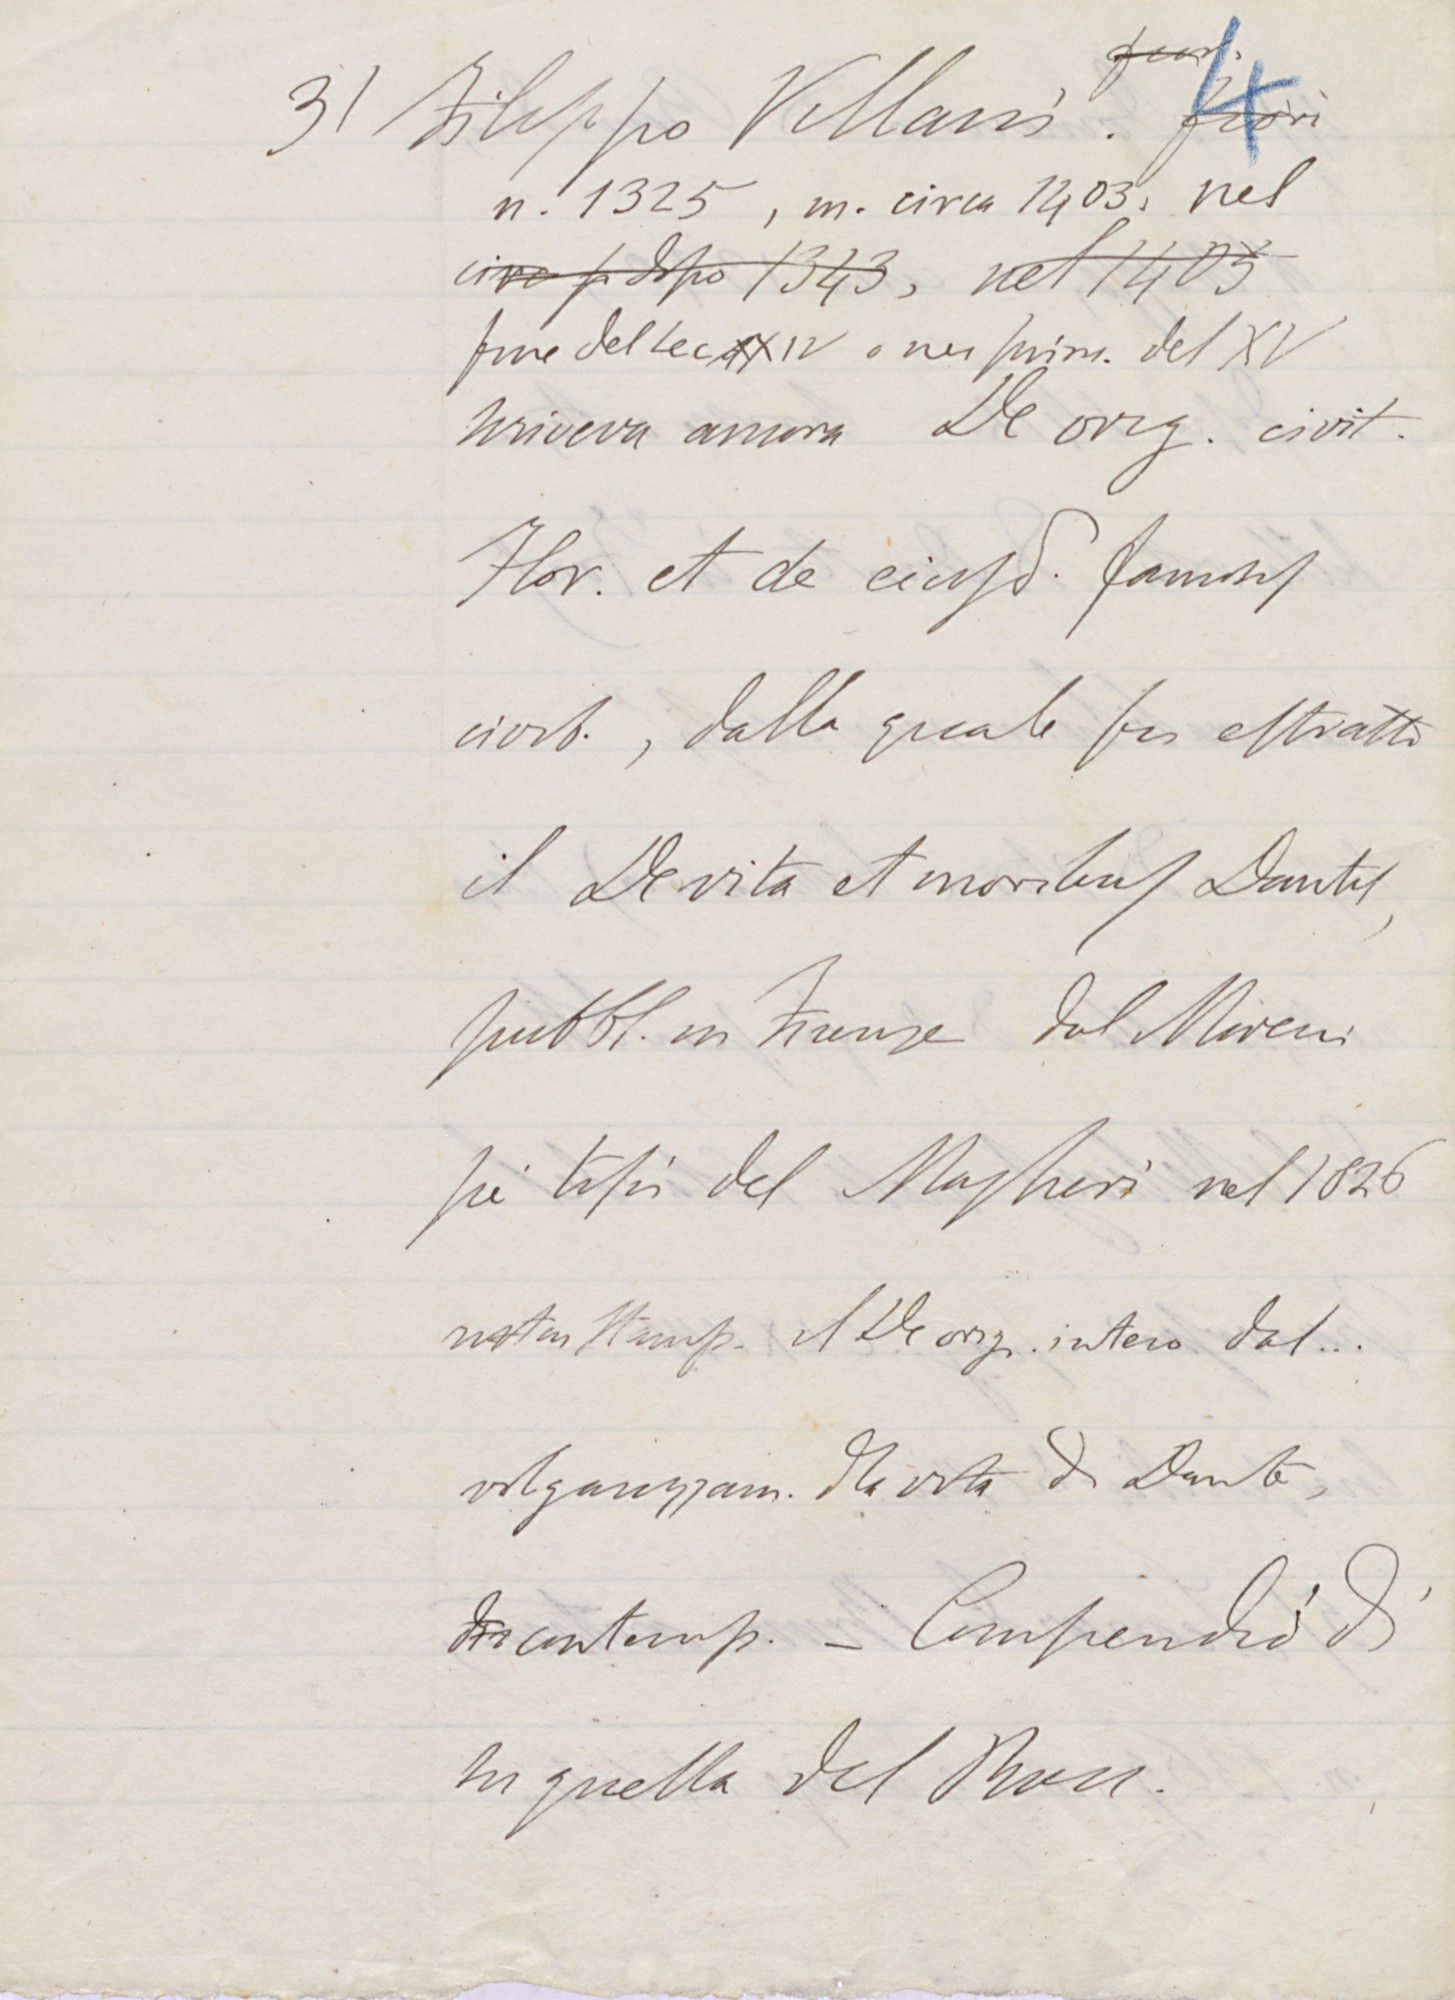 4
3) Filippo Villani. fiori
n. 1325, m. circa 1403. nel
circa dopo 1343, nel 1405
fine del sec XIV o nei prim. del XV
scriveva ancora De orig. civit.
Flor. et de eiusd. famosis
civib., dalla quale fu estratto
il De vita et moribus Dantis,
pubbl. in Firenze dal Moreni
pei tipi del Magheri nel 1826
stamp. il De orig. intero dal...
volgarizzam. d. la vita di Dante,
contemp. – Compendio di
su quella del Bocc.